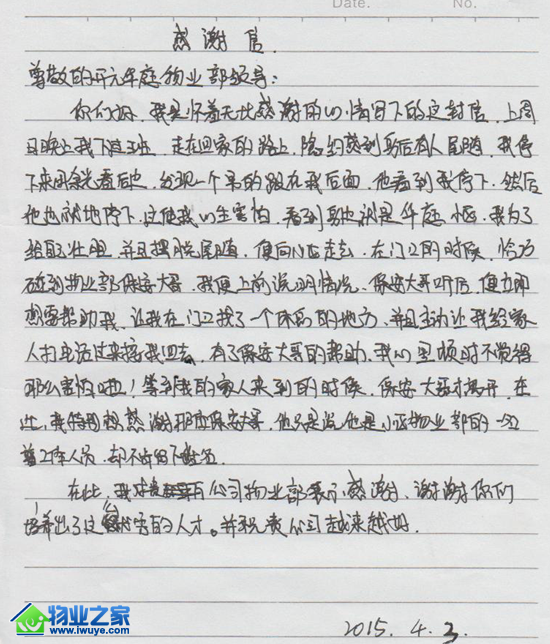 Date.
No.
感谢信
尊敬的开元华庭物业部领导：
你们好，我是怀着无比感谢的心情写下的这封信，上周
日晚上我下班，走在回家的路上，隐约感到身后有人尾随，我停
下来用余光看后边，发现一个男的跟在我后面，他看到我停下，然后
他也就地停下，这使我心生害怕，看到身边就是华庭小区，我为了
给自己壮胆，并且摆脱尾随，便向小区走去，在门口的时候，恰巧
碰到物业部保安大哥，我便上前说明情况，保安大哥听后，便立即
需要帮助我，让我在门口找了一个休息的地方，并且主动让我给家
人打电话过来接我回去，有了保安大哥的帮助，我心里顿时不觉得
那么害怕啦！等到我的家人来到的时候，保安大哥才离开，在
此，我特别想感谢那位保安大哥，他只是说他是小区物业部的一位
普通工作人员，却不留下姓名。
在此，我对贵公司物业部表示感谢，谢谢你们
培养出了这么优秀的人才。并祝贵公司越来越好.
2015. 4. 3.
物业之家
www.iwuye.com